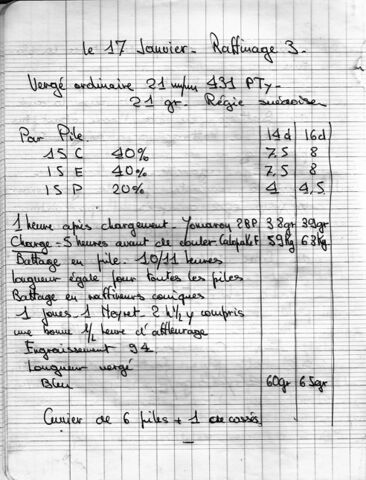 le 17 Janvier - Raffinage 3.
Vergé ordinaire 21 m/m 431 PTy-
21 gr. Régie suédoise
Par Pile. 14d 16d
15 C 40% 7,5 8
15 E 40% 7,5 8
15 P 20% 4 4,5
1 heure après chargement - 2BP 38gr 39gr
Charge = 5 heures avant de couler 59Kg 63Kg
Battage en pile. 10/11 heures
Longueur égale pour toutes les piles
Battage en raffineurs coniques
1 Jones - 1 Neyret. 2 h 1/2 y compris
une bonne 1/2 heure d'affleurage
Engraissement 94.
Longueur vergé
Bleu 60gr 65gr
Cuvier de 6 piles + 1 de cassés.